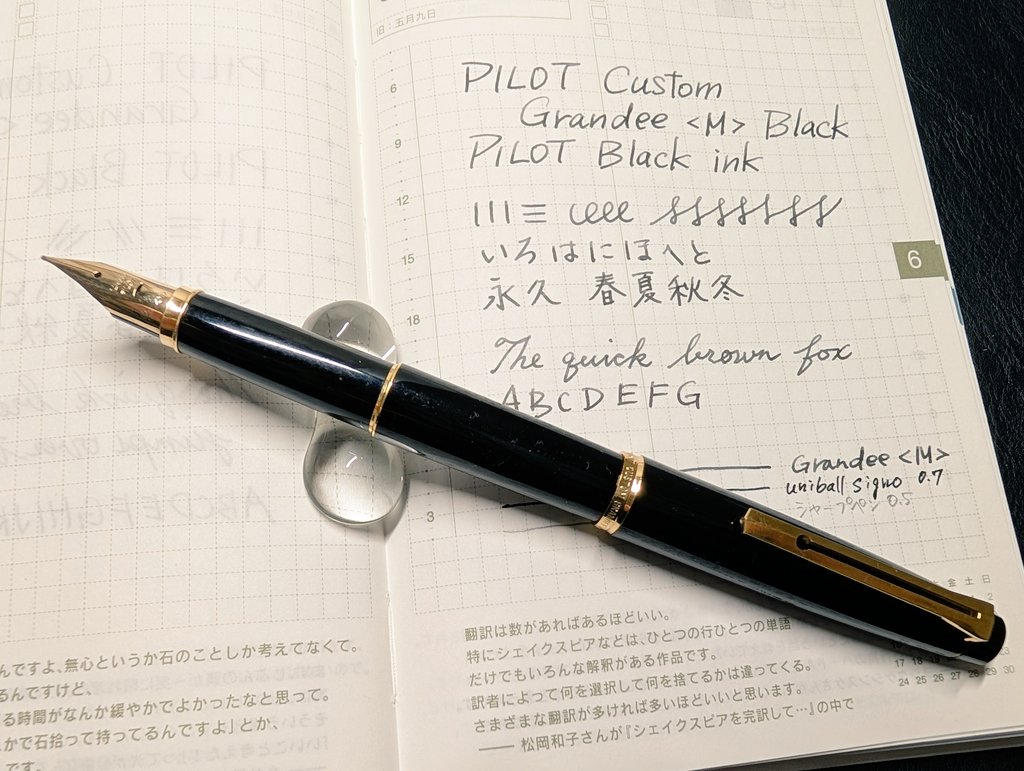 旧：五月九日
6
9
12
15
18
3
PILOT Custom
Grandee <M> Black
PILOT Black ink
いろはにほへと
永久 春夏秋冬
The quick brown fox
ABCDEFG
Grandee <M>
uniball signo 0.7
シャープペン 0.5
6
金 土 日
17 18
24 25 26 27 28 29 30
翻訳は数があればあるほどいい。
特にシェイクスピアなどは、ひとつの行ひとつの単語
だけでもいろんな解釈がある作品です。
訳者によって何を選択して何を捨てるかは違ってくる。
さまざまな翻訳が多ければ多いほどいいと思います。
── 松岡和子さんが『シェイクスピアを完訳して…』の中で
んですよ、無心というか石のことしか考えてなくて。
るんですけど、
る時間がなんか緩やかでよかったなと思って。
かで石拾って持ってるんですよ」とか、
です。